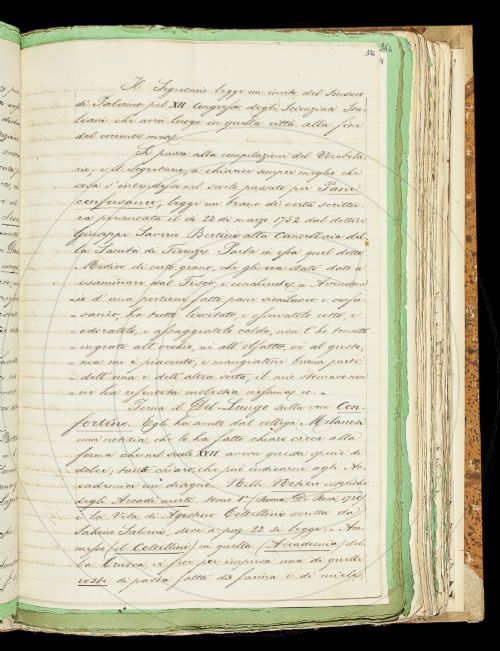 366
Il Segretario legge un invito del Sindaco
di Palermo pel XII Congresso degli Scienziati Ita-
liani che avrà luogo in quella città alla fine
del corrente mese.
Si passa alla compilazione del Vocabola-
rio, e il Segretario, a chiarire sempre meglio che
cosa s'intendesse nel secolo passato per Pane
confusaneo, legge un brano di certa scrittu-
ra presentata il dì 22 di marzo 1752 dal dottor
Giuseppe Saverio Bertini alla Cancelleria del-
la Sanità di Firenze. Parla in essa quel dotto
Medico di certo grano, che gli era stato dato a
esaminare dal Fisco, e conchiude: = Avendone
io d'una porzione fatto pane
ho tutto lievitato, e cotto, e
odoratolo, e assaggiatolo caldo, non l'ho trovato
ingrato all'occhio, nè all'olfatto, nè al gusto,
ma mi è piaciuto, e mangiatone buona parte
dell'una e dell'altra sorta, il mio stomaco non
ne ha risentita molestia nessuna ec. =
Torna il Del Lungo sulla voce Con-
fortino. Egli ha avuto dal collega Milanesi
una notizia, che lo ha fatto chiaro circa alla
forma che nel secolo XVII aveva questa specie di
dolci, tanto chiaro, che può indicarne agli Ac-
cademici un disegno. Nelle Notizie istoriche
degli Arcadi morti, tomo 1º (Roma, De Rossi 1720)
è la Vita di Agostino Coltellini scritta da
Salvino Salvini, dove a pag. 22 si legge: = Am-
messo (il Coltellini) in quella (Accademia) del-
la Crusca vi fece per impresa una di quelle
roste di pasta fatta di farina e di miele,